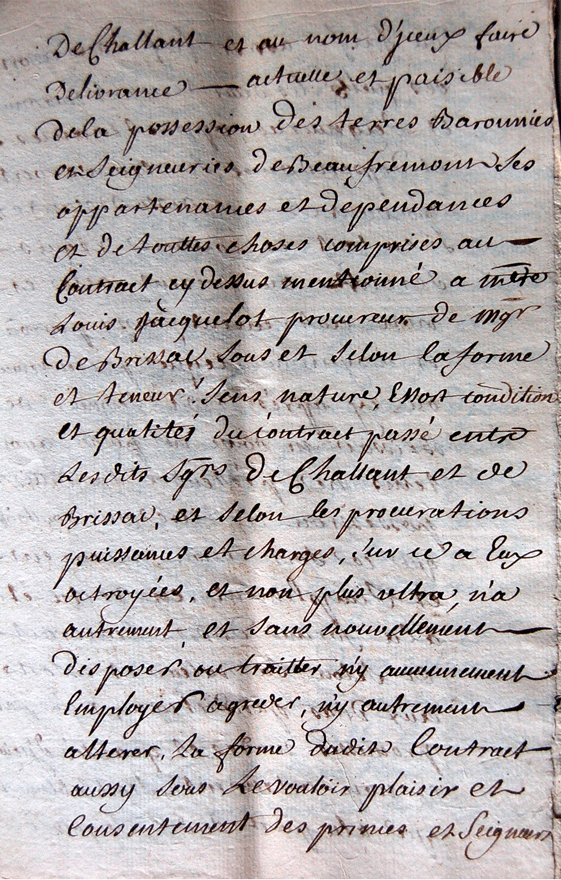 De Challant et au nom d'jeux faire
Delivrance — actuelle et paisible
De la possession des terres Baronnies
et Seigneuries de Beaufremont ses
appartenances et dependances
et de touttes choses comprises au —
Contract cy dessus mentionné a mtre
Louis Jacquelot procureur de mgr
de Brissac, sous et selon la forme
et teneur sens nature, condition
et qualités du contract passé entre
Lesdits Sgrs De Challant et de
Brissac, et selon les procurations
puissances et charges, sur ce a Eux
octroyées, et non plus ultra n'a
autrement, et sans nouvellement —
disposer ou traitter n'y aucunement
Employer agreder, n'y autrement —
alterer, La forme dudit Contract
aussy sous Le vouloir plaisir et
Consentement des princes et Seigneurs